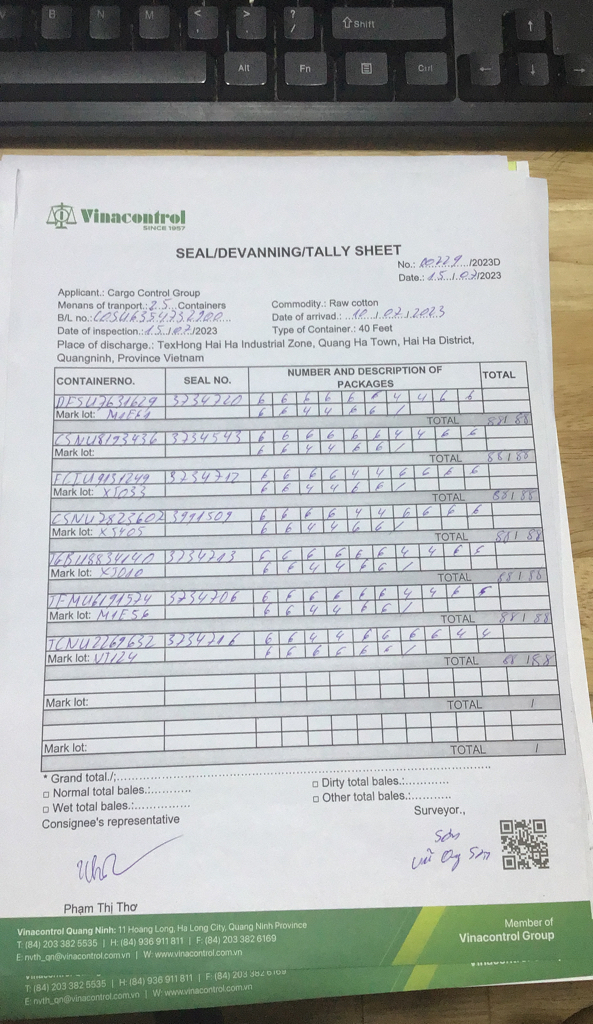 B N M < > ? / Shift ↑
Alt Fn Ctrl ← ↓ →
Vinacontrol
SINCE 1957
SEAL/DEVANNING/TALLY SHEET
No.: 00729 /2023D
Date.: 15 / 07/2023
Applicant.: Cargo Control Group
Menans of tranport.: 25 Containers Commodity.: Raw cotton
B/L no.: COSU6354732900 Date of arrivad.: 10 / 07 / 2023
Date of inspection.: 15 / 07 /2023 Type of Container.: 40 Feet
Place of discharge.: TexHong Hai Ha Industrial Zone, Quang Ha Town, Hai Ha District,
Quangninh, Province Vietnam
CONTAINERNO. SEAL NO. NUMBER AND DESCRIPTION OF PACKAGES TOTAL
DFSU7631629 3734720 6 6 6 6 6 6 4 4 6 6
Mark lot: M1E61 6 6 4 4 6 6 /
TOTAL 88 / 88
CSNU8193436 3734543 6 6 6 6 6 6 4 4 6 6
Mark lot: 6 6 4 4 6 6 /
TOTAL 88 / 88
3734712 6 6 6 6 4 4 6 6 6 6
Mark lot: XJ033 6 6 4 4 6 6 /
TOTAL 88 / 88
CSNU7823602 3991509 6 6 6 6 4 4 6 6 6 6
Mark lot: XS405 6 6 4 4 6 6 /
TOTAL 88 / 88
3734713 6 6 6 6 6 6 4 4 6 6
Mark lot: XJ010 6 6 4 4 6 6 /
TOTAL 88 / 88
TEMU6191524 3734706 6 6 6 6 6 6 4 4 6 6
Mark lot: M1E56 6 6 4 4 6 6 /
TOTAL 88 / 88
TCNU2269632 3734716 6 6 4 4 6 6 6 6 4 4
Mark lot: UT124 6 6 6 6 6 6 /
TOTAL 88 / 88
Mark lot:
TOTAL /
Mark lot:
TOTAL /
* Grand total./;
□ Normal total bales.: □ Dirty total bales.:
□ Wet total bales.: □ Other total bales.:
Consignee's representative Surveyor.,
Sơn
Phạm Thị Thơ
Vinacontrol Quang Ninh: 11 Hoang Long, Ha Long City, Quang Ninh Province
T: (84) 203 382 5535 | H: (84) 936 911 811 | F: (84) 203 382 6169
E: nvth_qn@vinacontrol.com.vn | W: www.vinacontrol.com.vn
Member of
Vinacontrol Group
T: (84) 203 382 5535 | H: (84) 936 911 811 | F: (84) 203 382 6169
E: nvth_qn@vinacontrol.com.vn | W: www.vinacontrol.com.vn